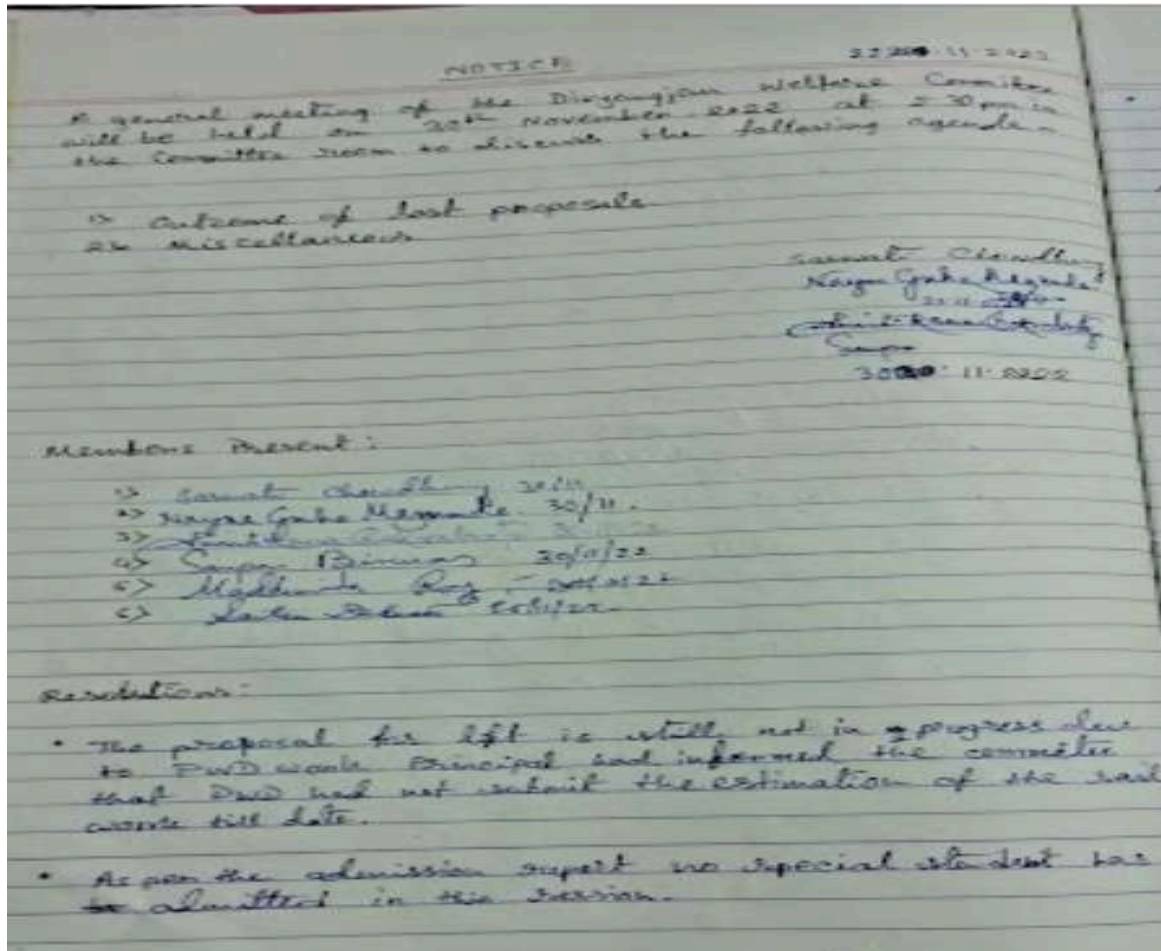 NOTICE
A general meeting of the Divyangjan Welfare Commitee
will be held on 30th November 2022 at 2:30 pm in
the Committee room to discuss the following agenda -
1> Outcome of last proposals
2> Miscellaneous
Sarwati Chowdhury
Nayna
Sampa
30 11.2022
Members Present:
1> Sarwati Chowdhury 30/11
2> Nayna 30/11.
3>
4> Sampa Biswas 30/11/22
5> Roy
6>
Resolutions:
• The proposal for lift is still not in progress due
to PWD work Principal sad informed the commitee
that PWD had not submit the estimation of the said
work till date.
• As per the admission report no special student has
admitted in this session.